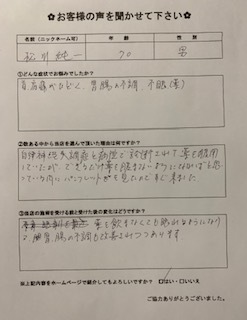 ✿お客様の声を聞かせて下さい✿
名前（ニックネーム可） 年　齢 性　別
70 男
①どんな症状でお悩みでしたか？
肩高痛がひどく、胃腸の不調、不眠（薬）
②数ある中から当店を選んで頂いた理由は何ですか？
自律神経失調症と病院で診断されて薬を服用
していたが、できるだけ薬を飲まないようにしなければと思
っている内にパンフレットが を見たので 来ました
③当店の施術を受ける前と受けた後の変化はどうですか？
薬を飲まなくても眠れるようになり
胃腸の不調も改善しつつあります
※上記内容をホームページで紹介してもよろしいですか？ □はい・□いいえ
ご協力ありがとうございました。